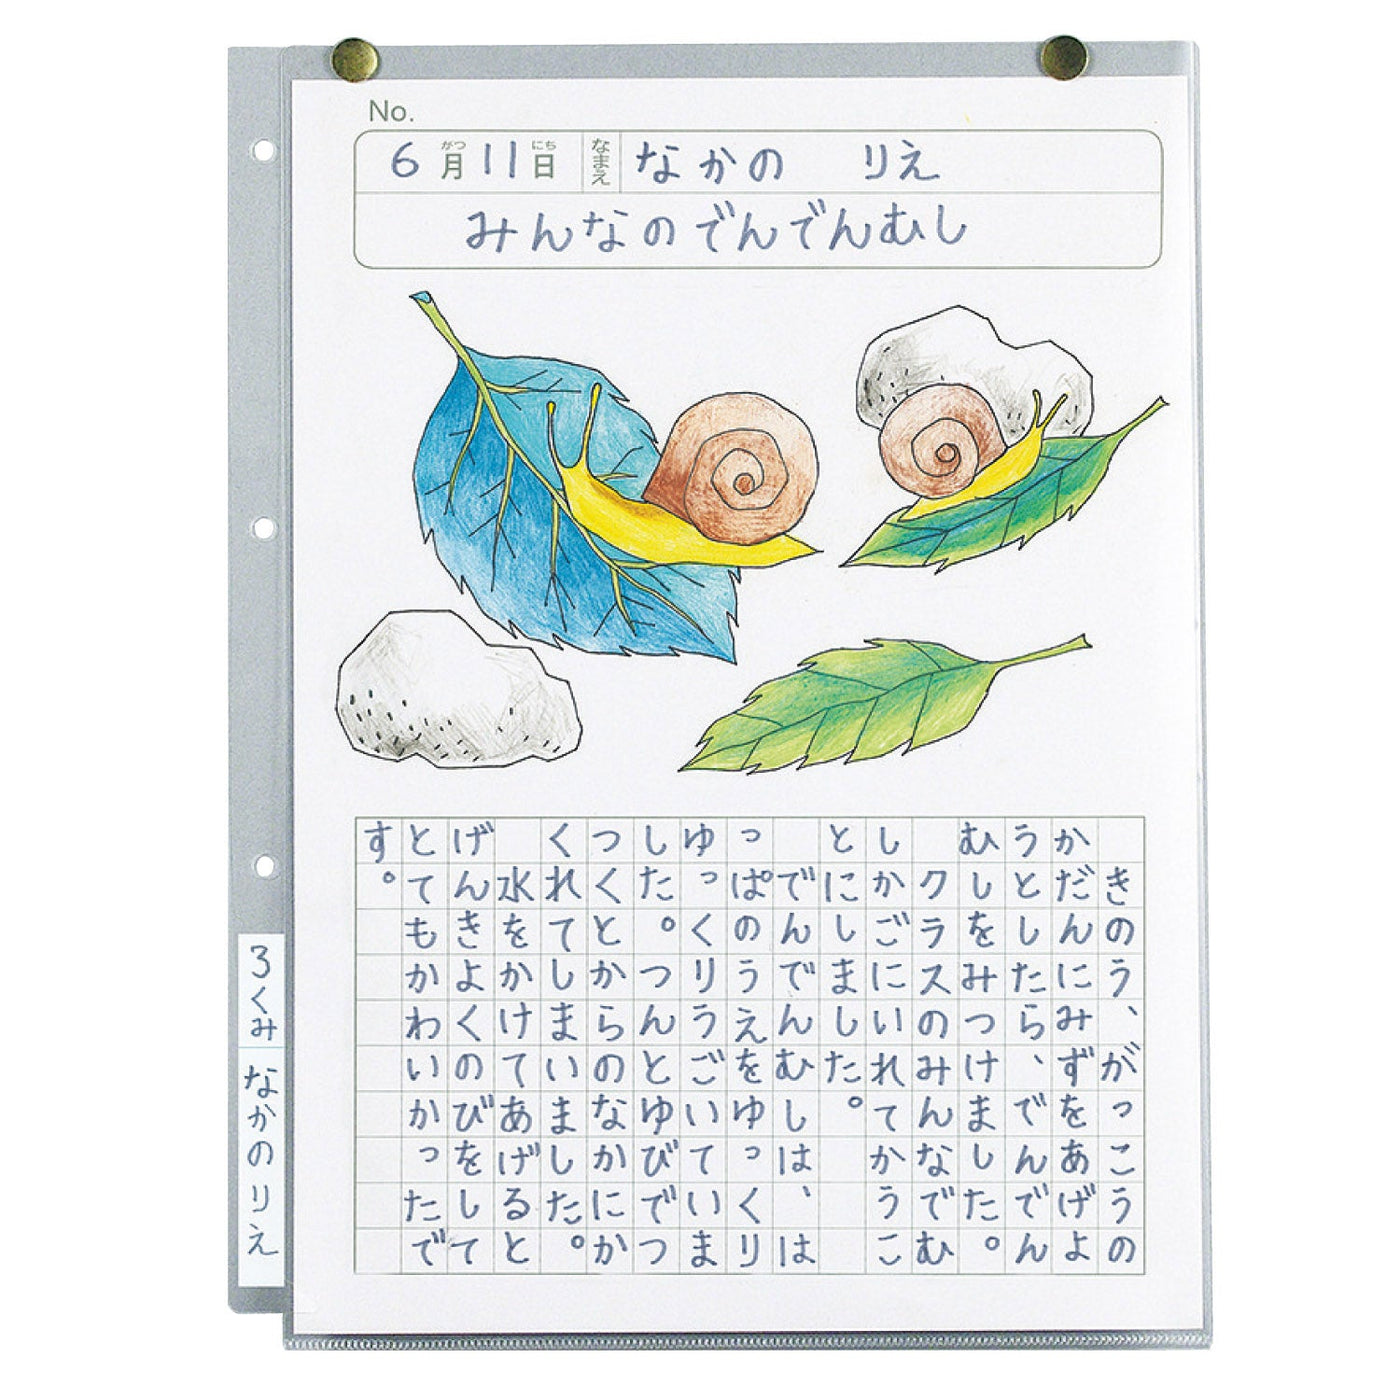 No.
6月11日 なまえ なかの りえ
がつ にち
みんなのでんでんむし
きのう、がっこうの
かだんにみずをあげよ
うとしたら、でんでん
むしをみつけました。
クラスのみんなでむ
しかごにいれてかうこ
とにしました。
でんでんむしは、は
っぱのうえをゆっくり
ゆっくりうごいていま
した。つんとゆびでつ
つくとからのなかにか
くれてしまいました。
水をかけてあげると
げんきよくのびをして
とてもかわいかったで
す。
3くみ なかのりえ